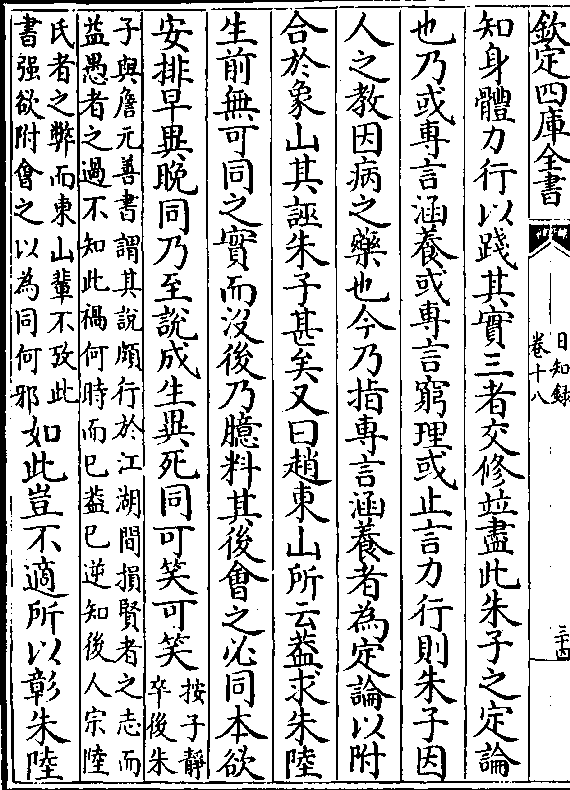 欽定四庫全書
日知録
卷十八
三十四
知身體力行以踐其實三者交修並盡此朱子之定論
也乃或專言涵養或專言窮理或止言力行則朱子因
人之教因病之藥也今乃指專言涵養者為定論以附
合於象山其誣朱子甚矣又曰趙東山所云葢求朱陸
生前無可同之實而沒後乃臆料其後會之必同本欲
安排早異晩同乃至說成生異死同可笑可笑按子靜
卒後朱
子與詹元善書謂其說頗行於江湖間損賢者之志而
益愚者之過不知此禍何時而已葢已逆知後人宗陸
氏者之弊而東山輩不攷此
書强欲附會之以為同何邪如此豈不適所以彰朱陸